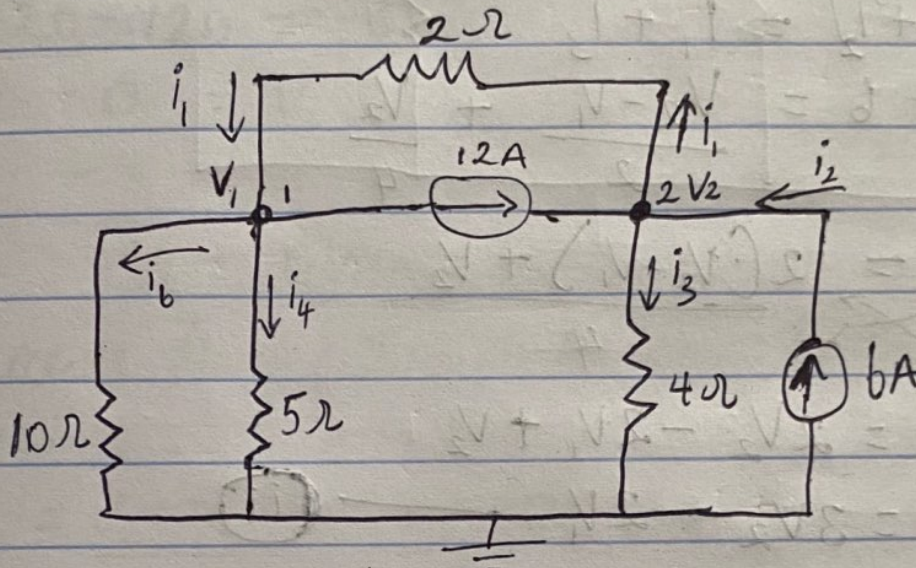 2Ω
i₁
i₁
12A
V₁ 1
2 V₂
i₂
i₆
i₄
i₃
10Ω
5Ω
4Ω
6A